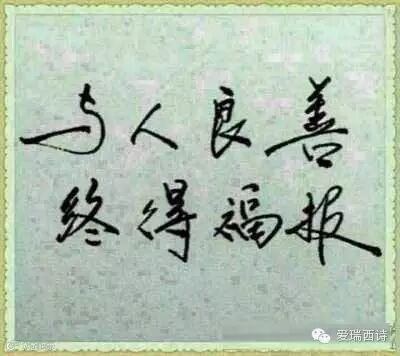 与人良善
终得福报
爱瑞西诗